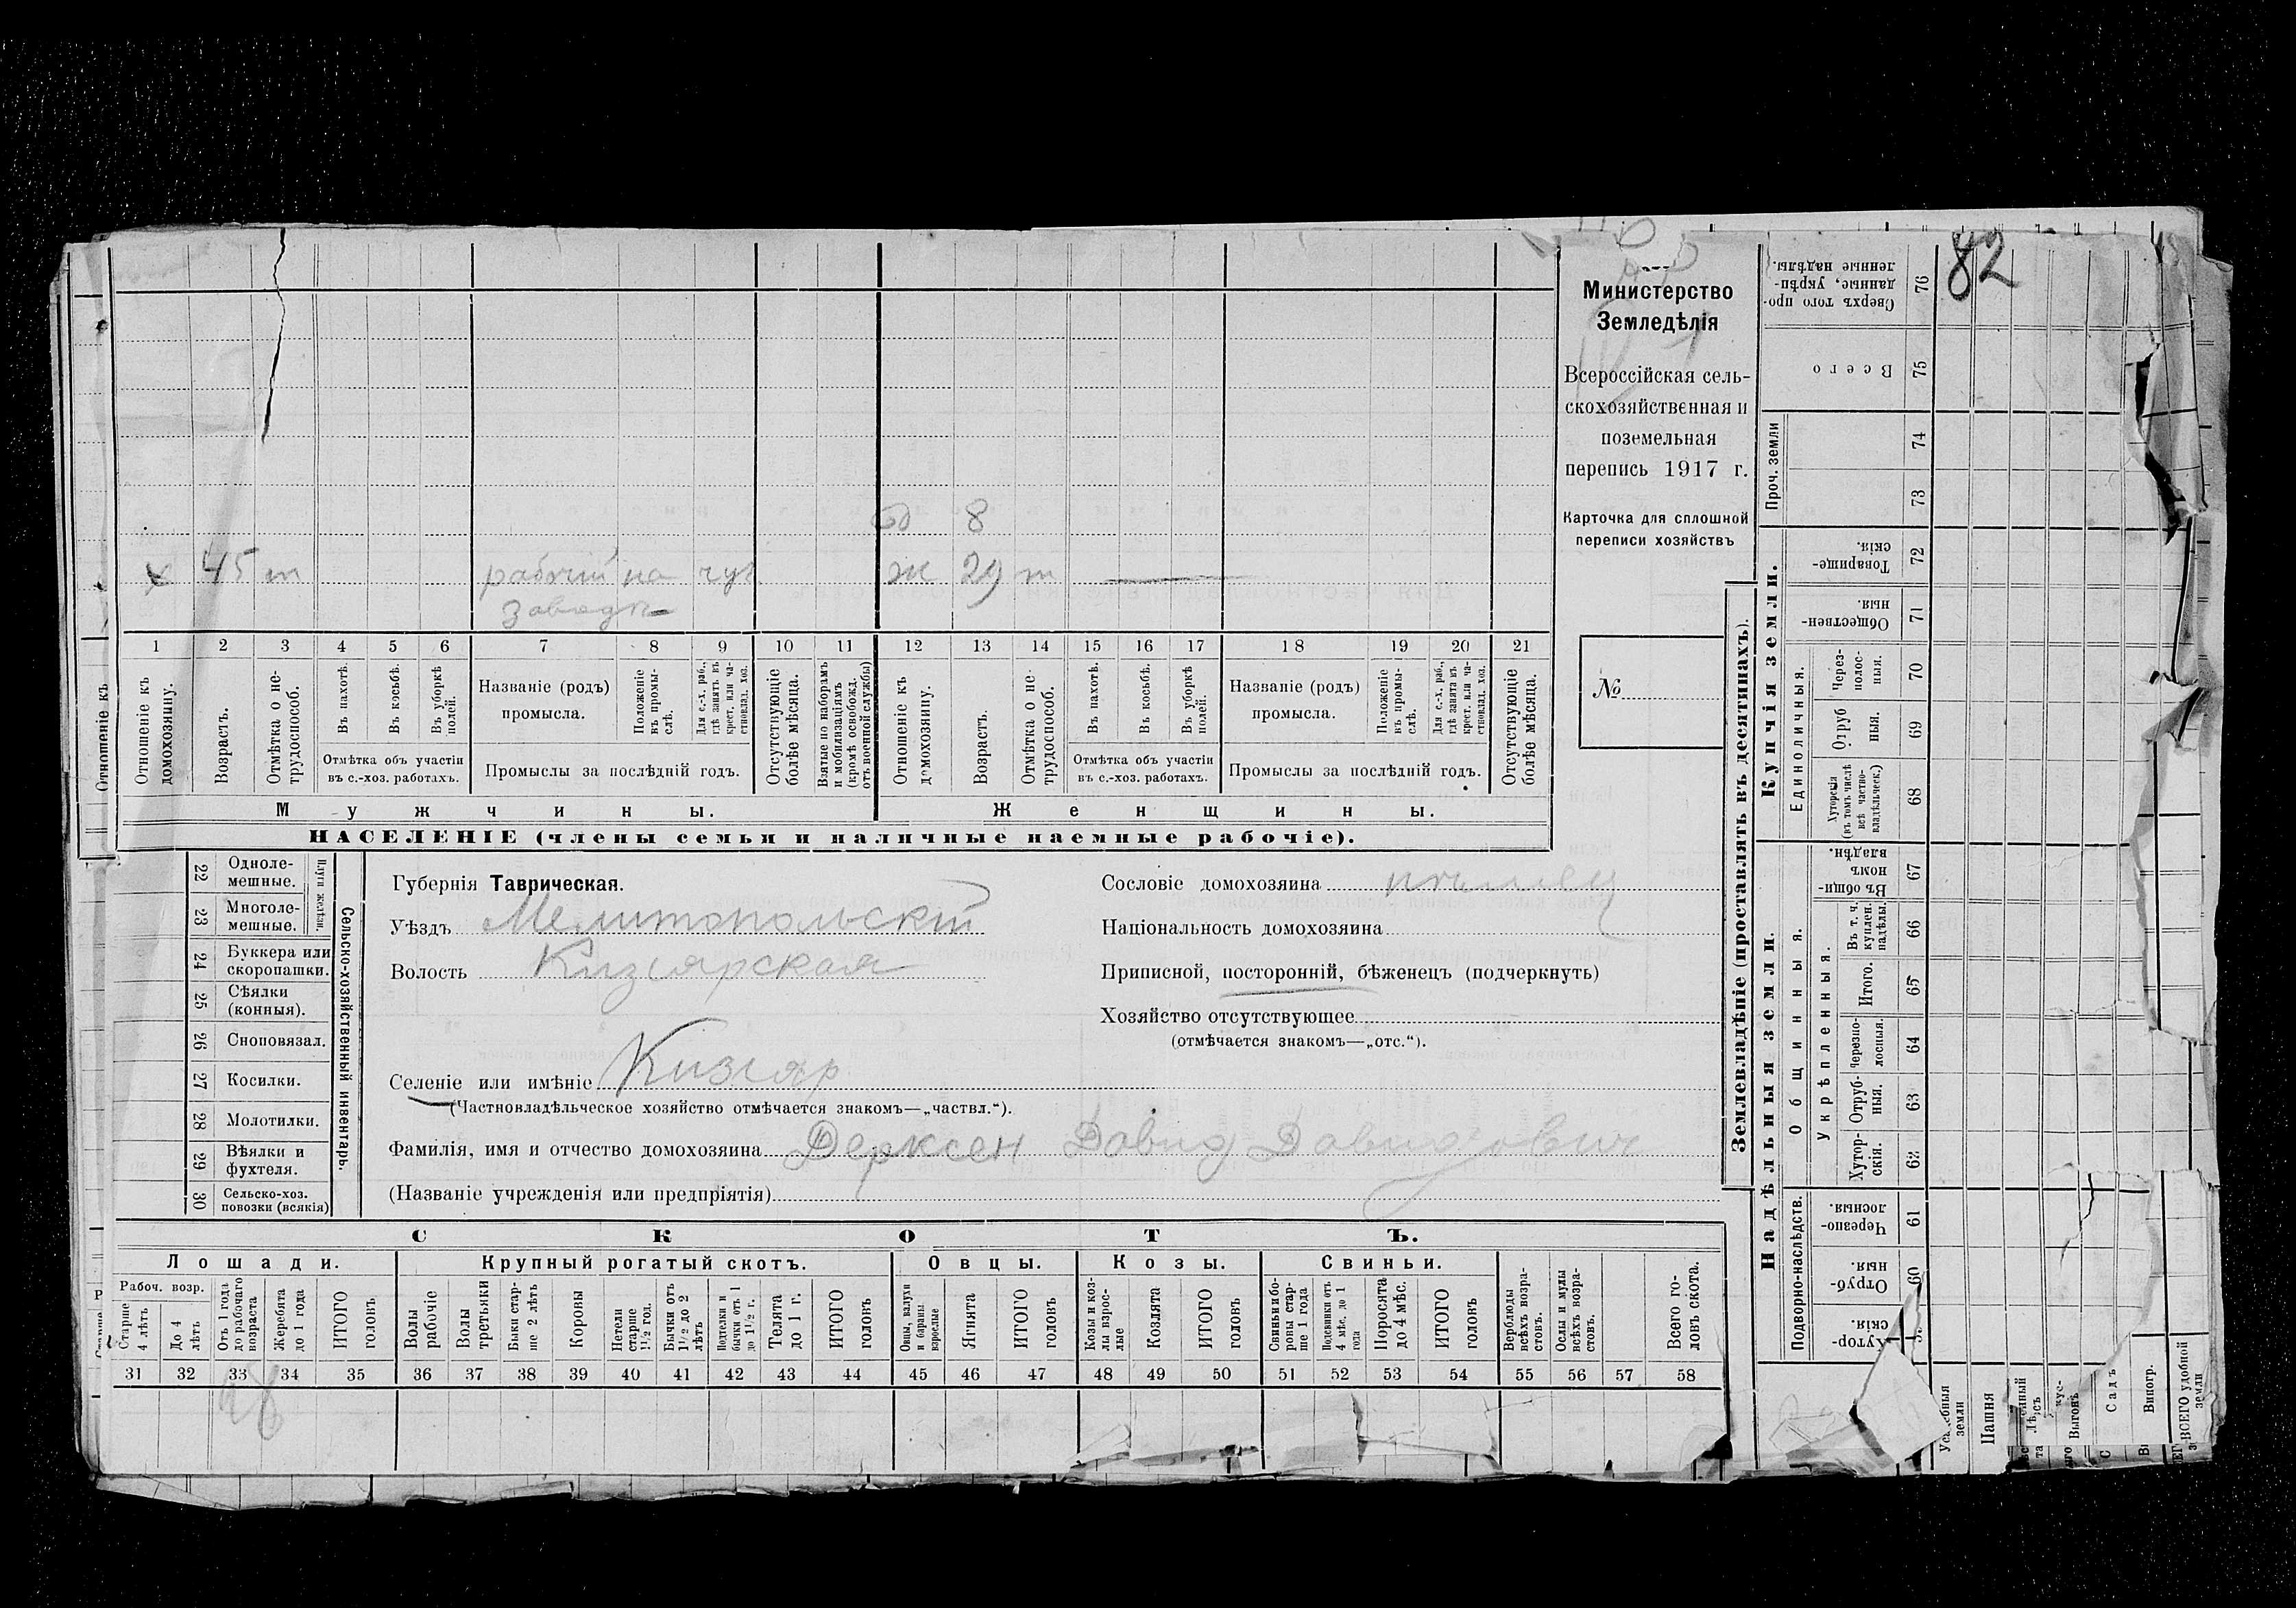 82
Министерство
Земледѣлія
Всероссійская сель-
скохозяйственная и
поземельная
перепись 1917 г.
Карточка для сплошной
переписи хозяйствъ
№
д 8
х 45 т рабочій на чуг. ж 29 т —
заводѣ
1 2 3 4 5 6 7 8 9 10 11 12 13 14 15 16 17 18 19 20 21
Отношеніе къ домохозяину.
Возрастъ.
Отмѣтка о не-трудоспособ.
Въ пахотѣ.
Въ косьбѣ.
Въ уборкѣ полей.
Отмѣтка объ участіи
въ с.-хоз. работахъ.
Названіе (родъ)
промысла.
Положеніе въ промы-слѣ.
Для с.-х. раб., гдѣ занятъ въ крест. или ча-стновлад. хоз.
Промыслы за послѣдній годъ.
Отсутствующіе болѣе мѣсяца.
Взятые по наборамъ и мобилизаціямъ (кромѣ освобожд. отъ военной службы)
Отношеніе къ домохозяину.
Возрастъ.
Отмѣтка о не-трудоспособ.
Въ пахотѣ.
Въ косьбѣ.
Въ уборкѣ полей.
Отмѣтка объ участіи
въ с.-хоз. работахъ.
Названіе (родъ)
промысла.
Положеніе въ промы-слѣ.
Для с.-х. раб., гдѣ занята въ крест. или ча-стновлад. хоз.
Промыслы за послѣдній годъ.
Отсутствующіе болѣе мѣсяца.
Мужчины. Женщины.
НАСЕЛЕНІЕ (члены семьи и наличные наемные рабочіе).
Сельско-хозяйственный инвентарь.
Плуги желѣзн.
22 Одноле-мешные.
23 Многоле-мешные.
24 Буккера или скоропашки.
25 Сѣялки (конныя).
26 Сноповязал.
27 Косилки.
28 Молотилки.
29 Вѣялки и фухтеля.
30 Сельско-хоз. повозки (всякія)
Губернія Таврическая.
Уѣздъ Мелитопольскій
Волость Кизіярская
Селеніе или имѣніе Кизіяр
(Частновладѣльческое хозяйство отмѣчается знакомъ—„частвл.“).
Фамилія, имя и отчество домохозяина Дерксен Давид Давидович
(Названіе учрежденія или предпріятія)
Сословіе домохозяина
Національность домохозяина
Приписной, посторонній, бѣженецъ (подчеркнуть)
Хозяйство отсутствующее
(отмѣчается знакомъ—„отс.“).
СКОТЪ.
Лошади. Крупный рогатый скотъ. Овцы. Козы. Свиньи.
Рабоч. возр.
Старше 4 лѣтъ
До 4 лѣтъ
Отъ 1 года до рабочаго возраста
Жеребята до 1 года
ИТОГО головъ
Волы рабочіе
Волы третьяки
Быки стар-ше 2 лѣтъ
Коровы
Нетели старше 1½ год.
Бычки отъ 1½ до 2 лѣтъ
Подтелки и бычки отъ 1 до 1½ г.
Телята до 1 г.
ИТОГО головъ
Овцы, валухи и бараны взрослые
Ягнята
ИТОГО головъ
Козы и коз-лы взрос-лые
Козлята
ИТОГО головъ
Свиньи и бо-ровы стар-ше 1 года
Подсвинки отъ 4 мѣс. до 1 года
Поросята до 4 мѣс.
ИТОГО головъ
Верблюды всѣхъ возра-стовъ.
Ослы и мулы всѣхъ возра-стовъ.
Всего го-ловъ скота.
31 32 33 34 35 36 37 38 39 40 41 42 43 44 45 46 47 48 49 50 51 52 53 54 55 56 57 58
Землевладѣніе (проставлять въ десятинахъ).
Надѣльныя земли.
Купчія земли.
Проч. земли
Подворно-наслѣдств.
Общинныя.
Укрѣпленныя.
Единоличныя.
Сверхъ того про-данные, укрѣп-ленные надѣлы. 76
Всего 75
74
73
Товарище-скія. 72
Обществен-ныя. 71
Через-полос-ныя. 70
Отруб-ныя. 69
Хуторскія (въ томъ числѣ всѣ частно-владѣльческ.) 68
Въ общин-номъ владѣн. 67
Въ т. ч. куплен. надѣлы. 66
Итого. 65
Черезпо-лосныя. 64
Отруб-ныя. 63
Хутор-скія. 62
Черезпо-лосныя. 61
Отруб-ныя 60
Хутор-скія.
Пашня
Садъ
Виногр.
ВСЕГО удобной земли
Отношеніе къ